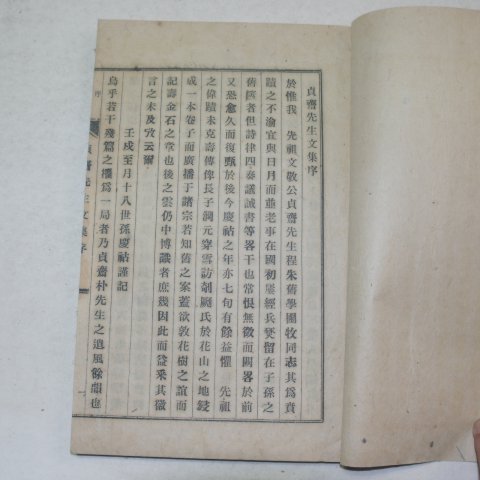 貞齋先生文集序
於惟我 先祖文敬公貞齋先生程朱舊學圃牧同志其爲賁
蹟之不渝宜與日月而並老事在國初屢經兵燹留在子孫之
蔀陔者但詩律四奏議誠書等畧干也常恨無徵而闕畧於前
又恐愈久而復甄於後今慶祜之年亦七旬有餘益懼 先祖
之偉蹟未克壽傳俾長子潤元穿雪訪剞劂氏於花山之地錽
成一本卷子而廣播于諸宗若知舊之案蓋欲敦花樹之誼而
記壽金石之章也後之雲仍中博識者庶幾因此而益釆其徽
言之未及攷云爾
壬戌至月十八世孫慶祜謹記
烏乎若干殘篇之襍爲一局者乃貞齋朴先生之遺風餘韻也
貞齋先生文集序
序